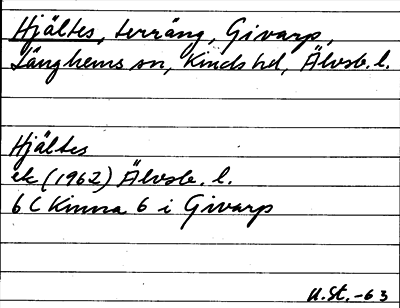 Hjältes, terräng, Givarp,
Länghems sn, Kinds hd, Älvsb. l.
Hjältes
ek (1962) Älvsb. l.
6 C Kinna 6 i Givarp
U.St. -63